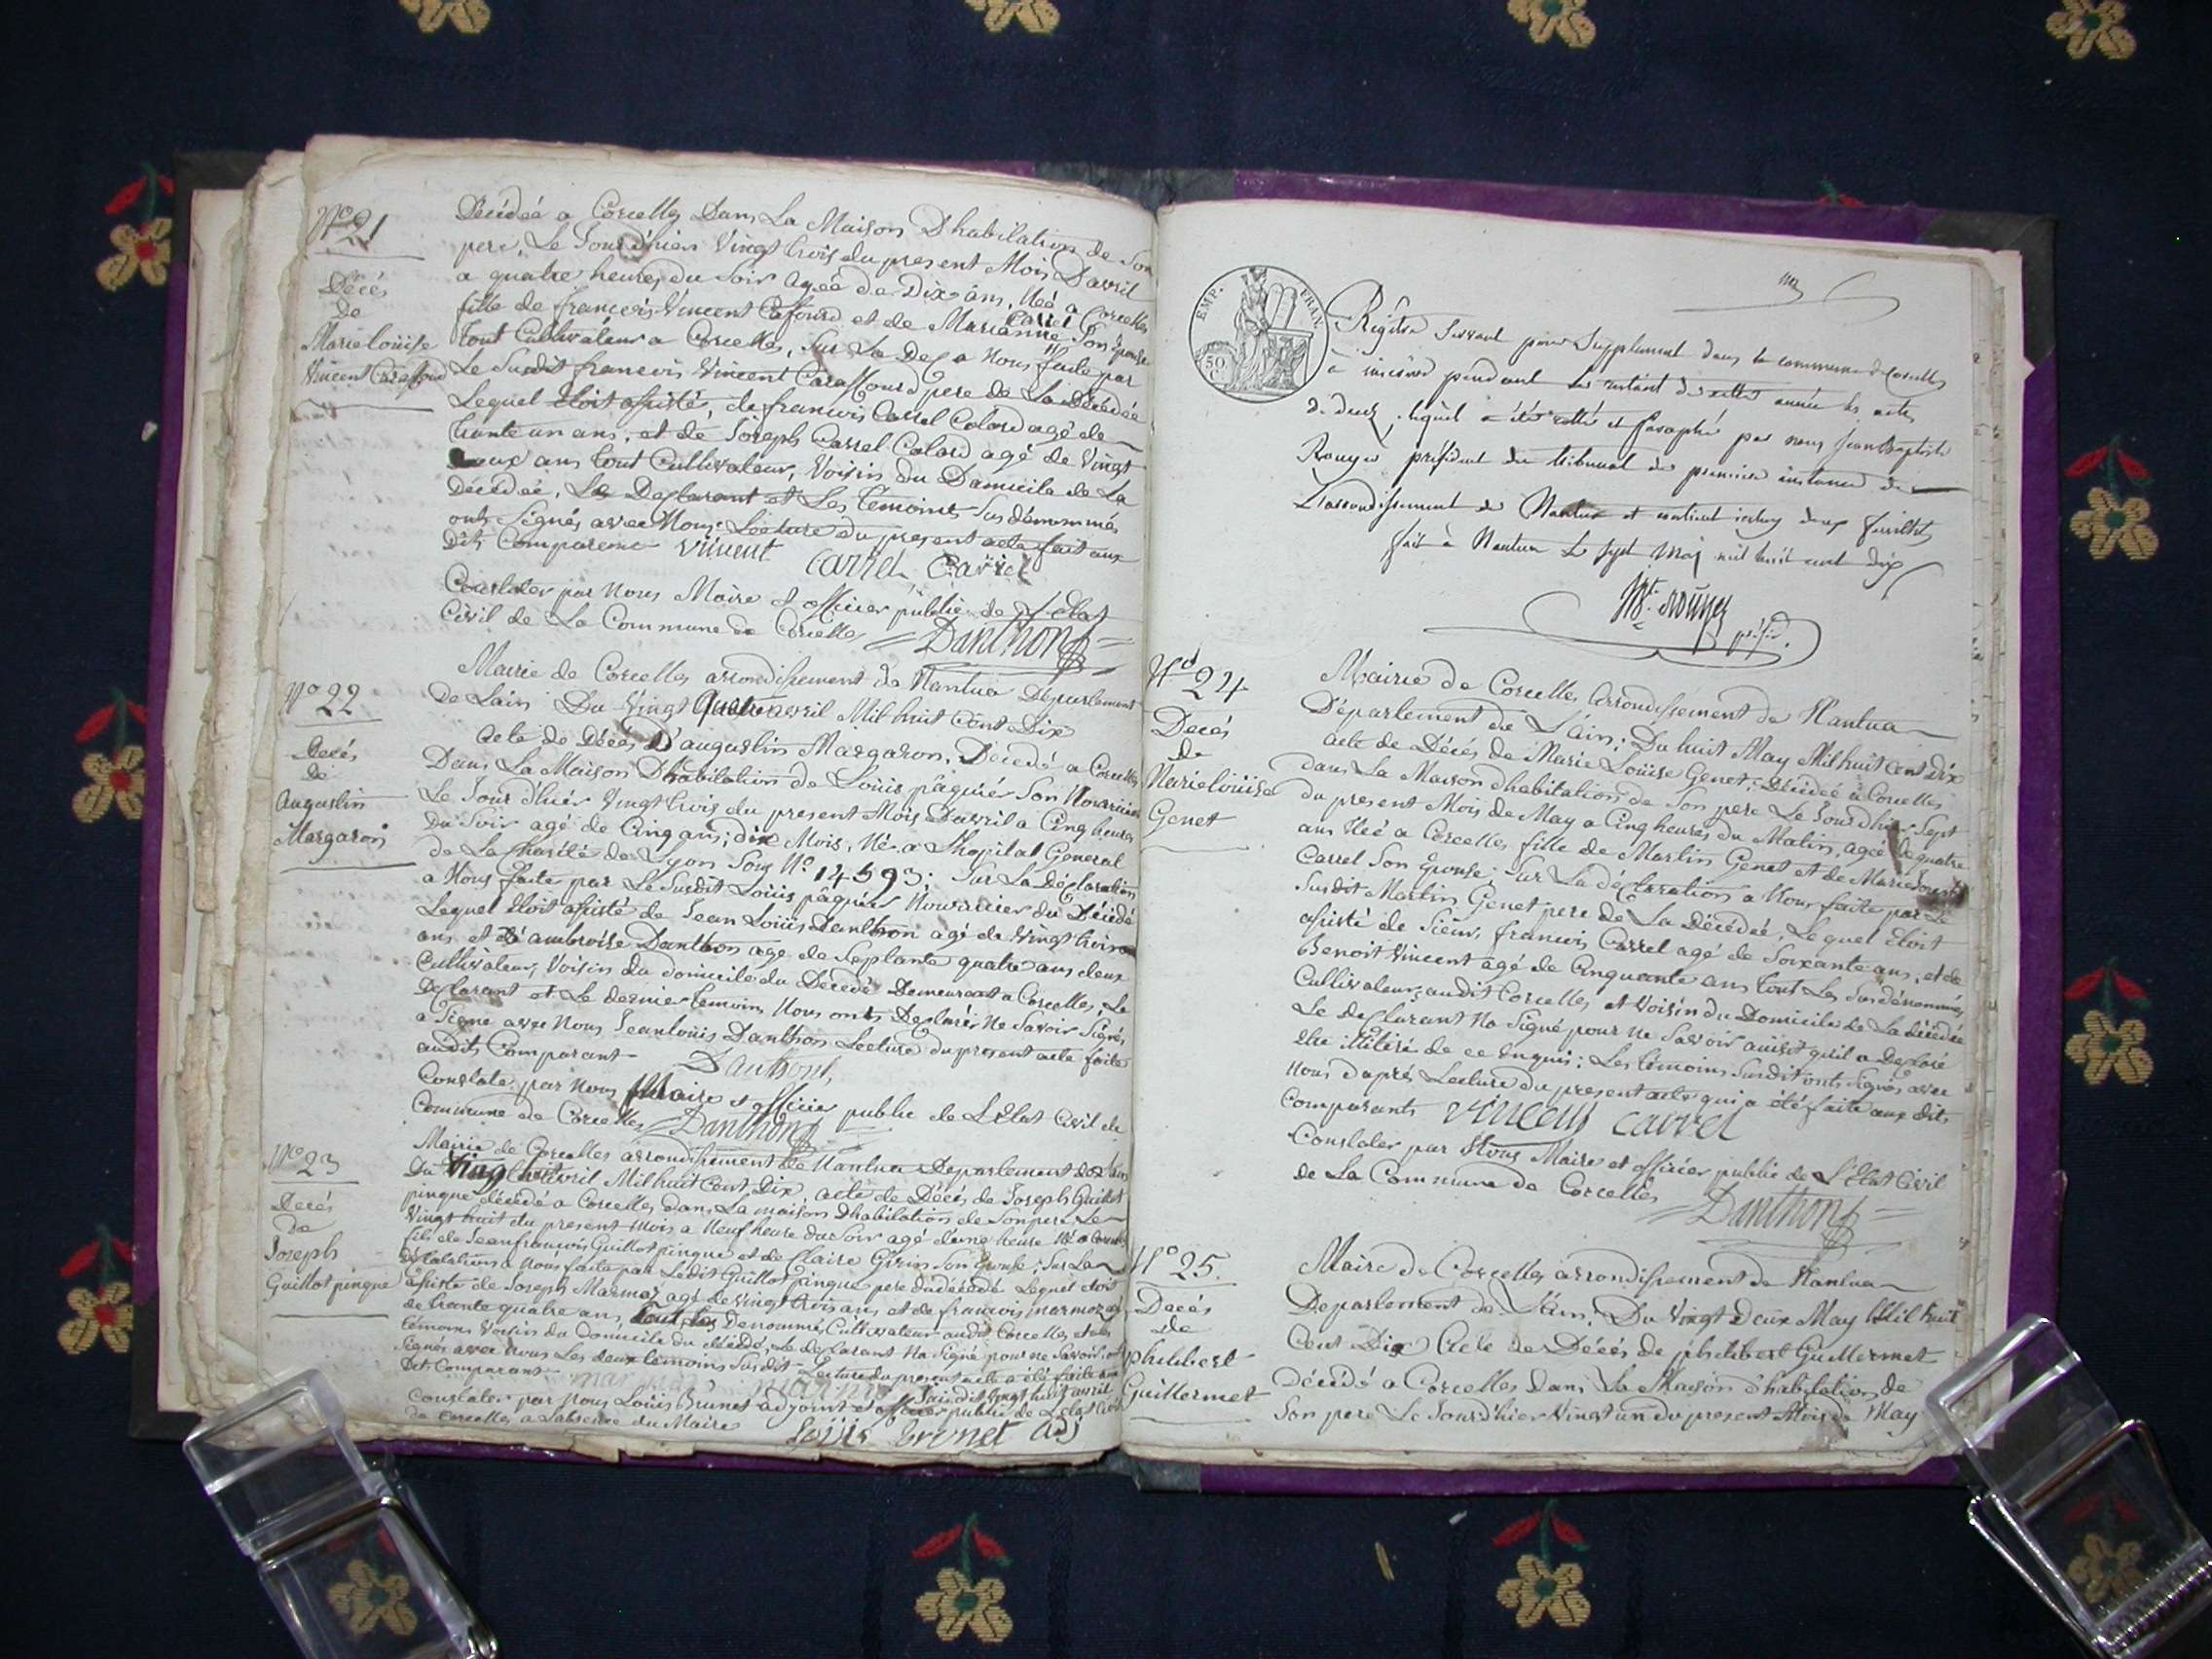 N° 21
Décés
De
Marie loüise
Vincent Caraffourd
Décédeé a Corcelles Dans La Maison D'habitation de Son
pere, Le Jour d'hiers Vingt trois du present Mois D'avril
a quatre heures du Soir agéé de Dix ans, Neé a Corcelles
fille de francois Vincent Caffourd et de Marianne Carrel Son Epouse
tout Cultivateur a Corcelles, Sur La Deᶜ a Nous faite par
Le Susdit francois Vincent Caraffourd pere de La Décédeé
Lequel etoit assisté, de francois Carrel Colard agé de
trante un ans, et de Joseph Carrel Colard agé de Vingt
Deux ans tout Cultivateur, Voisins du Domicile de La
Décédeé, Le Declarant et Les temoins Sus dénommés
onts Signés avec Nous. Lecture du present acte fait aux
Dits Comparent Vincent Carrel Carrel
Constater par Nous Maire et officier public de l'Etat
Civil de La Commune de Corcelles Danthon
N° 22
Decés
de
Augustin
Margaron
Mairie de Corcelles arrondissement de Nantua Département
De Lain Du Vingt Quatre avril Mil huit Cent Dix
acte de Décés D'augustin Margaron, Décédé a Corcelles
Dans La Maison D'habitation de Loüis pâquier Son Nourricier
Le Jour d'hiér Vingt trois du present Mois Davril a Cinq heures
Du Soir agé de Cinq ans, dix Mois, Né a L'hopital General
de La Charité de Lyon Sous N° 14593; Sur La Déclaration
a Nous faite par Le Susdit Loüis pâquier Nourricier du Décédé
Lequel etoit assisté de Jean Loüis Danthon agé de Vingt trois
ans et de ambroise Danthon age de Septante quatre ans deux
Cultivateur, Voisin du domicile du Décédé Demeurant a Corcelles, Le
Declarant et Le dernier temoin Nous onts Declarés Ne Savoir Signés
a Signe avec Nous Jean Loüis Danthon Lecture du present acte faite
audits Comparant Danthont
Constate par Nous Maire et officier public de L'Etat Civil de
Commune de Corcelles Danthon
N° 23
Decés
De
Joseph
Guillot pingue
Mairie de Corcelles arrondissement de Nantua Departement de Lain
Du Vingt huit avril Mil huit Cent Dix, acte de Décés de Joseph Guillot
pingue décédé a Corcelles dans La maison D'habitation de Son pere Le
Vingt huit du present mois a Neuf heure du Soir agé d'une heure Né a Corcelles
fils de Jean francois Guillot pingue et de Claire Girin Son Epouse, Sur La
Declaration a Nous faite par Ledit Guillot pingue pere du décédé Lequel etoit
assisté de Joseph Marmoz agé de Vingt trois ans et de francois marmoz agé
de trante quatre ans, tout Les Denommés Cultivateur audit Corcelles et Les
temoins Voisin du Domicile du décédé, Le declarant Na Signé pour ne Savoir ont
Signés avec Nous Les deux temoins Susdit Lecture du present acte a été faite aux
Dits Comparant marmoz marmoz Susdit Vingt huit avril
Constater par Nous Loüis Brunet adjoint et officier public de L'etat Civil
de Corcelles a Labsence du Maire Louis Brunet adj
EMP. FRAN.
50 C.
Régistre Servant pour Supplement dans la commune de Corcelles
à inscrire pendant le restant de cette année les actes
de deces, lequel a été cotté et Paraphé par nous Jean Baptiste
Rouyer président du tribunal de premiere instance de
L'arrondissement de Nantua et contient deux feuillets
fait à Nantua Le sept Mai mil huit cent dix
Rouyer présid.
N° 24
Decés
de
Marie loüise
Genet
Mairie de Corcelles Arrondissement de Nantua
Département de L'ain; Du huit May Mil huit Cent Dix
acte de Décés de Marie Loüise Genet, Décédeé a Corcelles
dans La Maison d'habitation de Son pere Le Jour d'hier Sept
du present Mois de May a Cinq heures du Matin, ageé de quatre
ans Neé a Corcelles fille de Martin Genet et de Marie
Carrel Son Epouse; Sur La déclaration a Nous faite par Le
Susdit Martin Genet pere de La Décédeé, Lequel Etoit
assisté de Sieurs francois Carrel agé de Soixante ans, et de
Benoit Vincent agé de Cinquante ans tout Les Susdénommés
Cultivateurs audit Corcelles et Voisin du Domicile de La décédeé
Le declarant Na Signé pour ne Savoir ainsit quil a Declaré
etre illitéré de ce Enquis: Les temoins Susdit onts Signés avec
nous d'aprés Lecture du present acte qui a été faite aux dits
Comparants Vincent Carrel
Constater par Nous Maire et officier public de L'Etat Civil
de La Commune de Corcelles Danthon
N° 25.
Decés
de
philibert
Guillermet
Maire de Corcelles arrondissement de Nantua
Departement de L'ain, Du Vingt Deux May Mil huit
Cent Dix Acte de Décés de philibert Guillermet
Décédé a Corcelles Dans La Maison d'habitation de
Son pere Le Jour d'hier Vingt un du present Mois de May